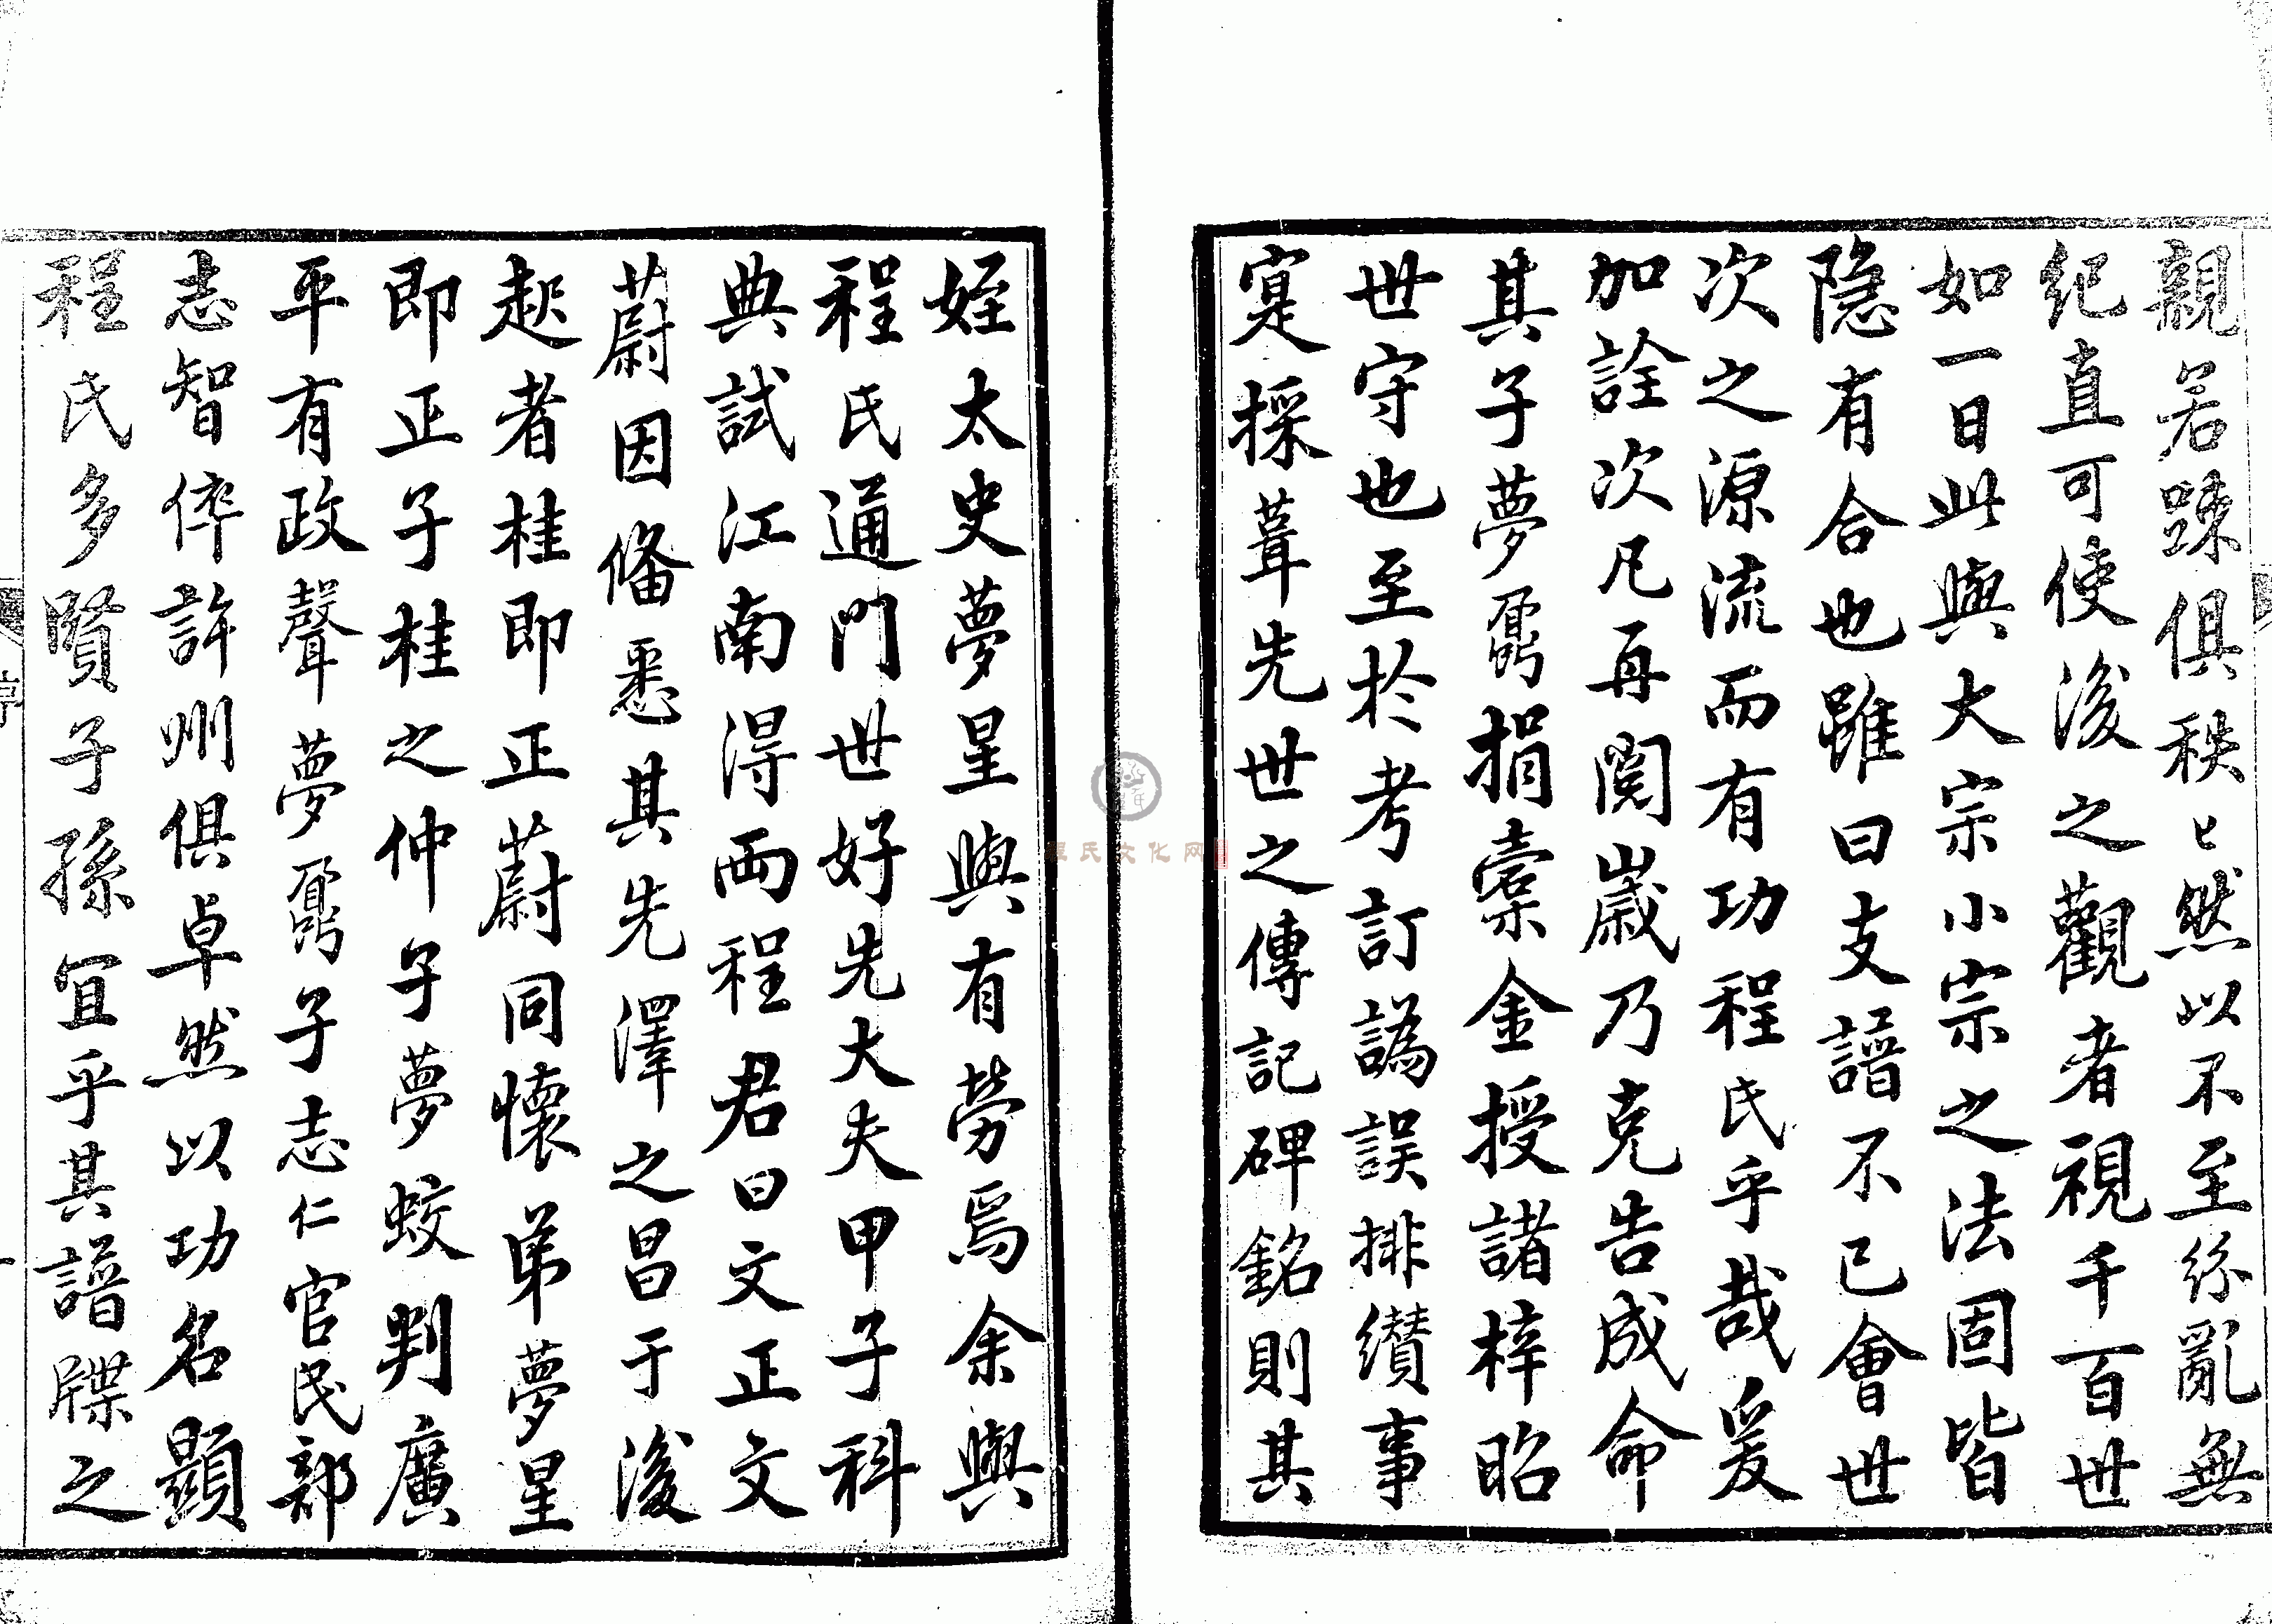 親若踈俱秩〻然以不至紛亂無
紀直可使後之觀者視千百世
如一日此與大宗小宗之法固皆
隱有合也雖曰支譜不已會世
次之源流而有功程氏乎哉爰
加詮次凡再閱歲乃克告成命
其子夢鼐捐橐金授諸梓昭
世守也至於考訂譌誤排纘事
寔採葺先世之傳記碑銘則其
姪太史夢星與有勞焉余與
程氏通門世好先大夫甲子科
典試江南得兩程君曰文正文
蔚因備悉其先澤之昌于後
起者桂即正蔚同懷弟夢星
即正子桂之仲子夢蛟判廣
平有政聲夢鼐子志仁官民部
志智倅許州俱卓然以功名顯
程氏多賢子孫宜乎其譜牒之
序
程氏文化网